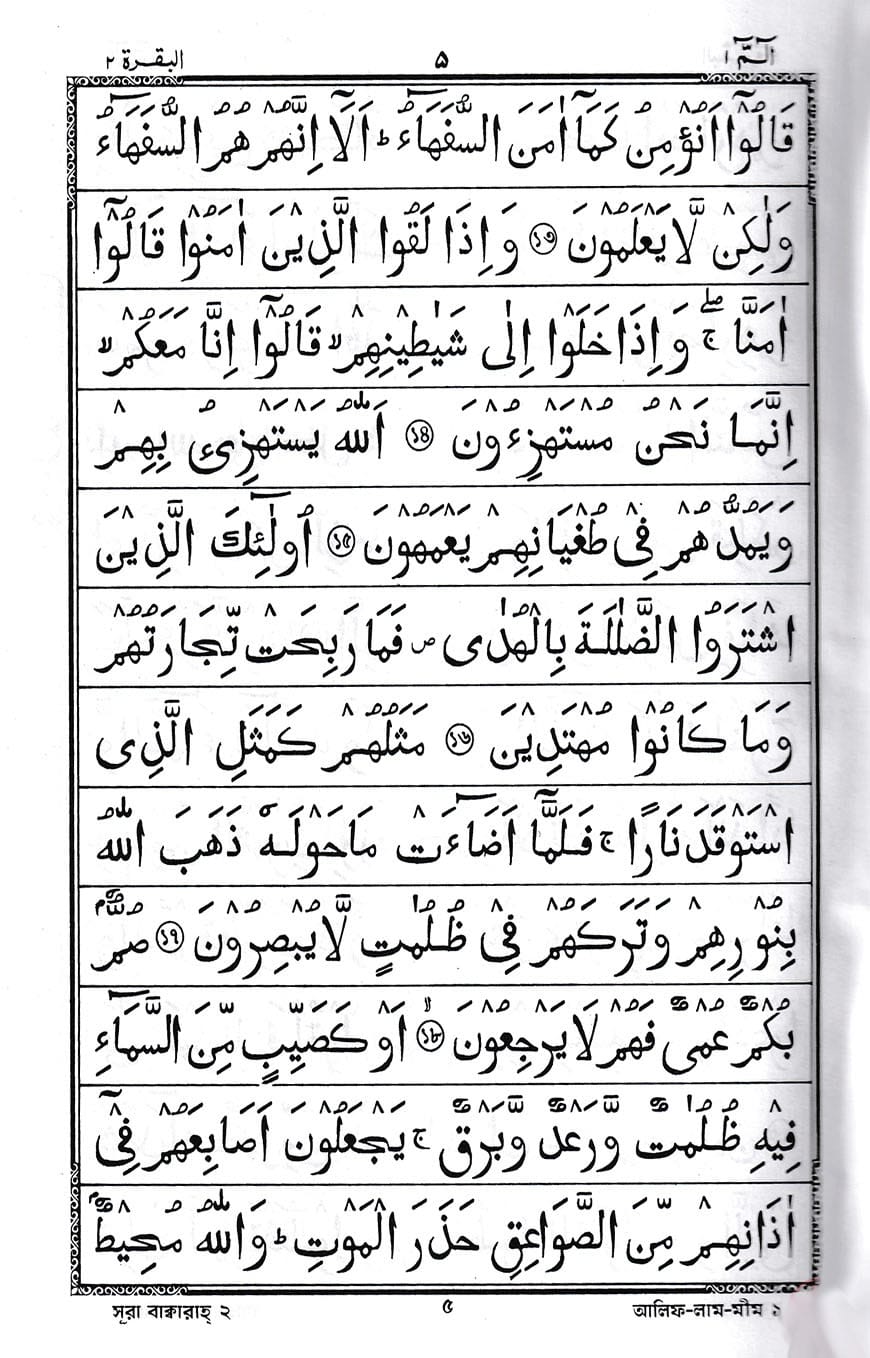 الٓمّٓ ١ ۵ البقرة ٢
قَالُوْٓا اَنُؤْمِنُ كَمَآ اٰمَنَ السُّفَهَآءُ ؕ اَلَآ اِنَّهُمْ هُمُ السُّفَهَآءُ
وَلٰكِنْ لَّا يَعْلَمُوْنَ ১৩ وَ اِذَا لَقُوا الَّذِيْنَ اٰمَنُوْا قَالُوْٓا
اٰمَنَّا ۖۚ وَ اِذَا خَلَوْا اِلٰى شَيٰطِيْنِهِمْ ۙ قَالُوْٓا اِنَّا مَعَكُمْ ۙ
اِنَّمَا نَحْنُ مُسْتَهْزِءُوْنَ ১৪ اَللّٰهُ يَسْتَهْزِئُ بِهِمْ
وَيَمُدُّهُمْ فِيْ طُغْيَانِهِمْ يَعْمَهُوْنَ ১৫ اُولٰٓئِكَ الَّذِيْنَ
اشْتَرَوُا الضَّلٰلَةَ بِالْهُدٰى ۪ فَمَا رَبِحَتْ تِّجَارَتُهُمْ
وَمَا كَانُوْا مُهْتَدِيْنَ ১৬ مَثَلُهُمْ كَمَثَلِ الَّذِى
اسْتَوْقَدَ نَارًا ۚ فَلَمَّآ اَضَآءَتْ مَا حَوْلَهٗ ذَهَبَ اللّٰهُ
بِنُوْرِهِمْ وَتَرَكَهُمْ فِيْ ظُلُمٰتٍ لَّا يُبْصِرُوْنَ ১৭ صُمٌّۢ
بُكْمٌ عُمْىٌ فَهُمْ لَا يَرْجِعُوْنَ ۙ ১৮ اَوْ كَصَيِّبٍ مِّنَ السَّمَآءِ
فِيْهِ ظُلُمٰتٌ وَّرَعْدٌ وَّبَرْقٌ ۚ يَجْعَلُوْنَ اَصَابِعَهُمْ فِيْٓ
اٰذَانِهِمْ مِّنَ الصَّوَاعِقِ حَذَرَ الْمَوْتِ ؕ وَاللّٰهُ مُحِيْطٌۢ
সূরা বাক্বারাহ্ ২ ৫ আলিফ-লাম-মীম ১